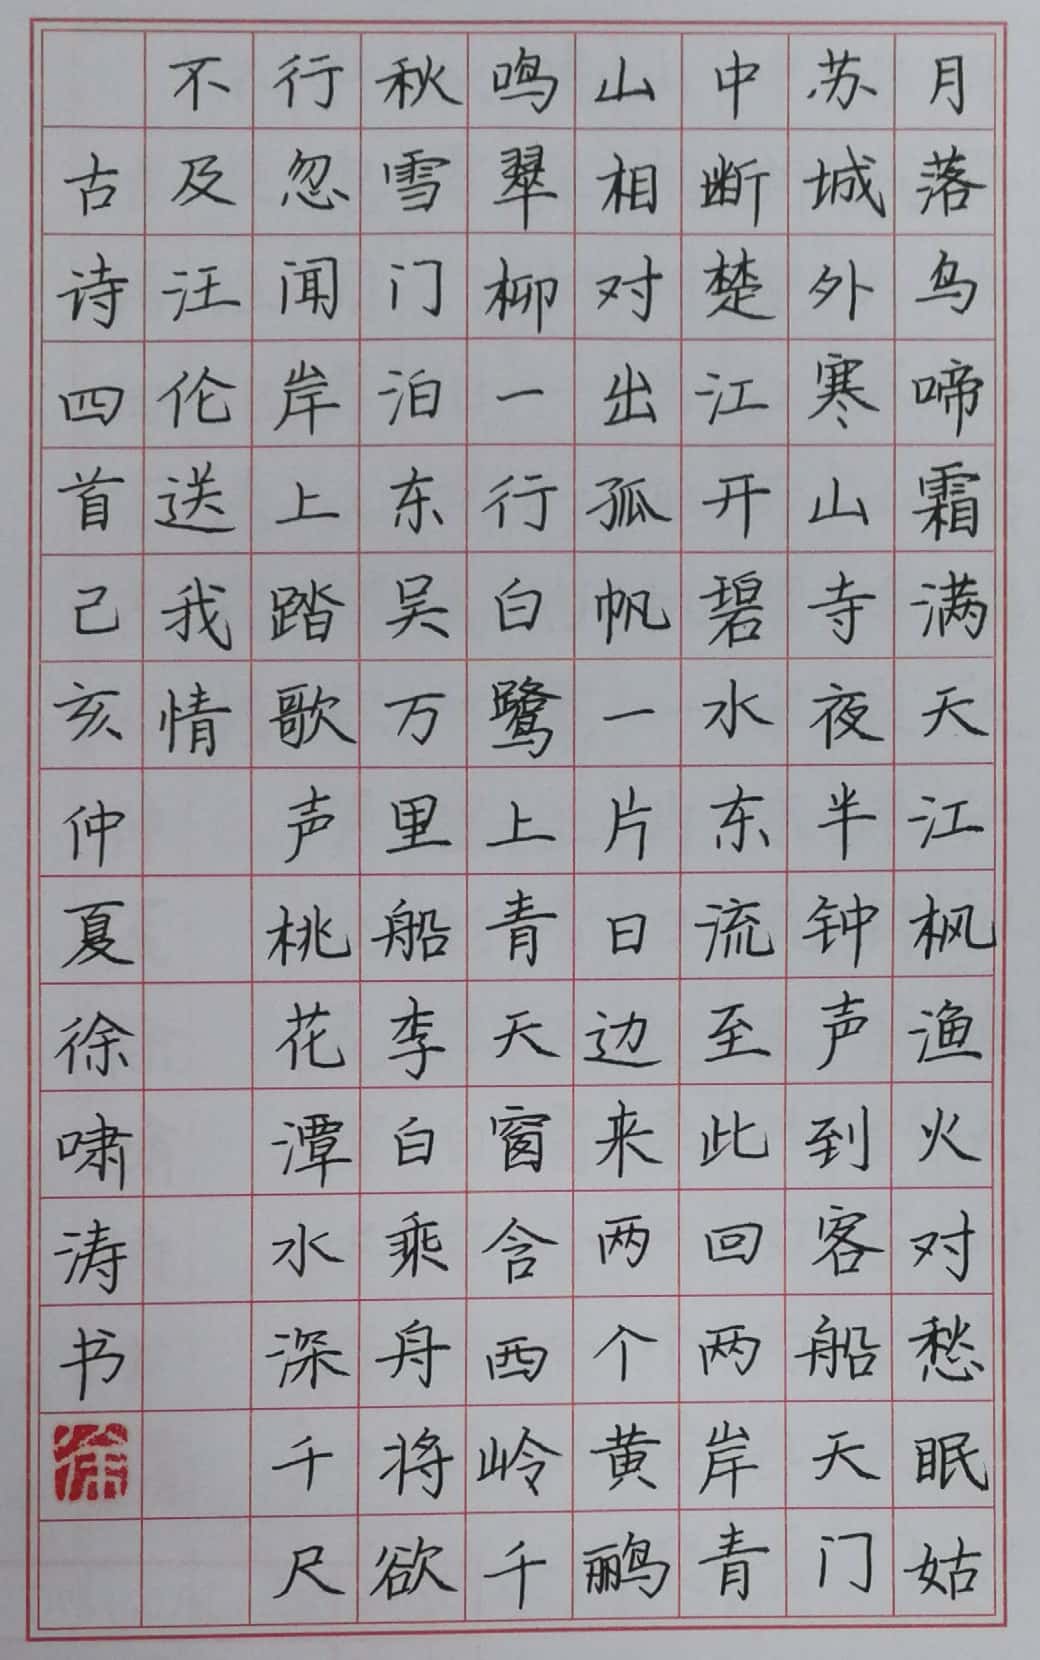 月落乌啼霜满天江枫渔火对愁眠姑
苏城外寒山寺夜半钟声到客船天门
中断楚江开碧水东流至此回两岸青
山相对出孤帆一片日边来两个黄鹂
鸣翠柳一行白鹭上青天窗含西岭千
秋雪门泊东吴万里船李白乘舟将欲
行忽闻岸上踏歌声桃花潭水深千尺
不及汪伦送我情
古诗四首己亥仲夏徐啸涛书
徐